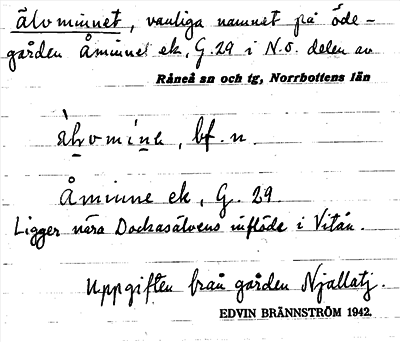 älvminnet, vanliga namnet på öde-
gården Åminne ek, G. 29 i N.ö. delen av
Råneå sn och tg, Norrbottens län
älvomine, bf. n.
Åminne ek, G. 29.
Ligger nära Dockasälvens inflöde i Vitån.
Uppgiften från gården Njallatj.
EDVIN BRÄNNSTRÖM 1942.